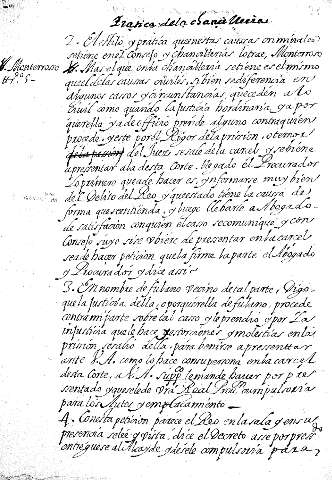 Pratica de la chancilleria
2. El stilo, y pratica que en estas causas criminales
se tiene en el Consejo y Chancilleria lo trae, Monterroso
V. Monterroso
Mas el que en la chancilleria se tiene es el mismo
que el de las causas civiles, si bien se diferencia en
algunos casos y circunstancias, que ceden a lo
Civil como quando la Justicia hordinaria ya por
querella, y a de officio prende alguno contra quien
procede, y este por el Rigor de la prision, o temor
del Juez se sale de la carcel, y se viene
a presentar a la desta Corte. Llegado el Procurador
lo primero que a de hacer es, ynformarse muy bien
del Delito del Reo, y que estado tiene la causa de
forma que se entienda, y luego llebarlo a Abogado
de satisfacion con quien el caso se comunique, y con
Consejo suyo si se ubiere de presentar en la carcel
se a de hacer peticion que la firma la parte el Abogado
y Procurador, y dira assi
3. En nombre de fulano vecino de tal parte, Digo
que la Justicia della, o por querella de fulano, procede
contra mi parte sobre tal caso y le prendio, y por la
injusticia que le hace, y molestias en la
prision se salio della, para benirse a presentar
ante V.A. como lo hace con su persona en la carcel
desta Corte, a V.A. supp.co le mande haver por pre
sentado y que se le de vra Real Prov.on compulsoria
para los Autos y emplazamiento
4. Con esta peticion parece el Reo en la sala, y en su
presencia se lee, y vista, dice el Decreto asse por press.do
entreguese al Alcayde, y desele compulsoria para,